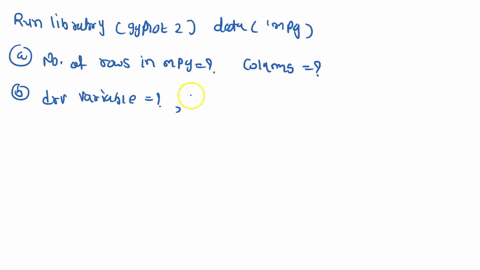 Run library (gyplot 2) data ('mpg)
(a) No. of rows in mpy=? Colqms =?
(b) drv variable =? ,